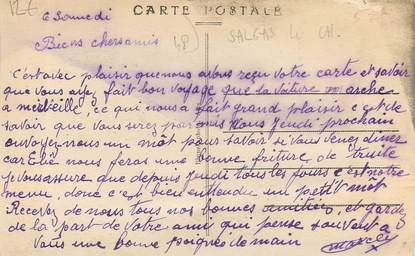 12€
CARTE POSTALE
Samedi
Biens chers amis
48
SALGAS le CH.
C'est avec plaisir que nous avons reçu votre carte et savoir
que vous avez fait bon voyage que la voiture marche
a merveille, ce qui nous a fait grand plaisir c'est de
savoir que vous serez parmis nous Jeudi prochain
envoyer-nous un mot pour savoir si vous venez diner
car nous feras une bonne friture de truite
je vous assure que depuis jeudi tous les jours c'est notre
menu, donc c'est bien entendu un petit mot
Recevez de nous tous nos bonnes amitiés, et garde
de la part de votre ami qui pense souvent a
vous une bonne poignée de main Marcel